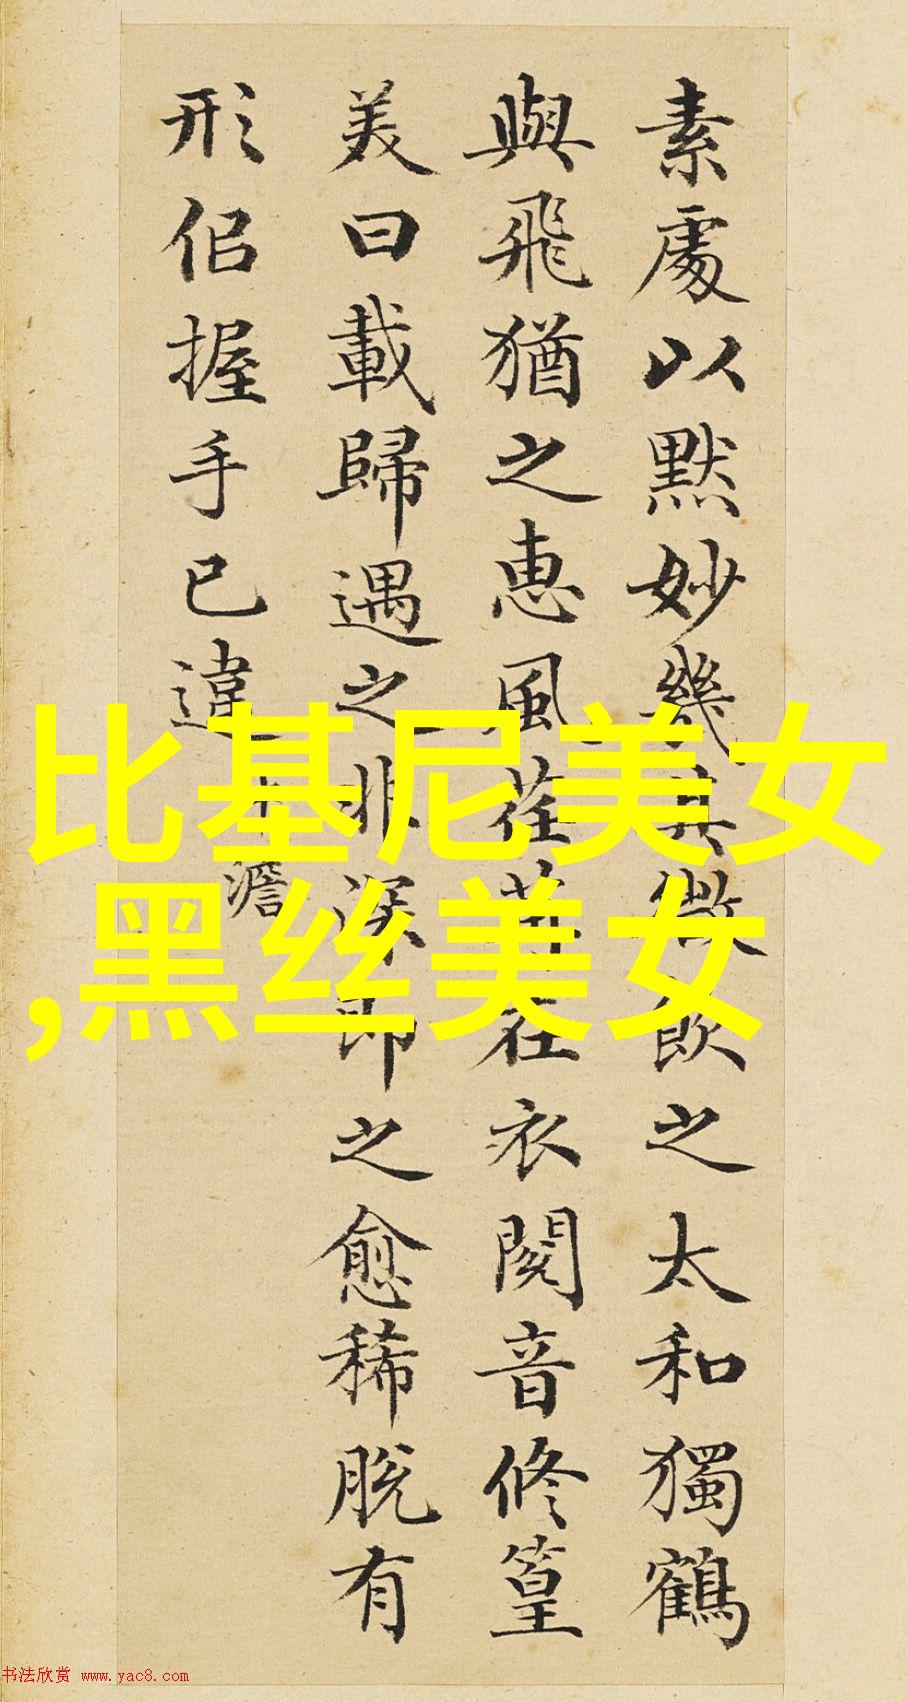 素處以默妙幾其微飲之太和獨鶴
與飛猶之惠風荏苒在衣閱音修篁
美曰載歸遇之非深即之愈稀脫有
形佀握手已違
澹
比基尼美女
,黑丝美女
书法欣赏 www.yac8.com